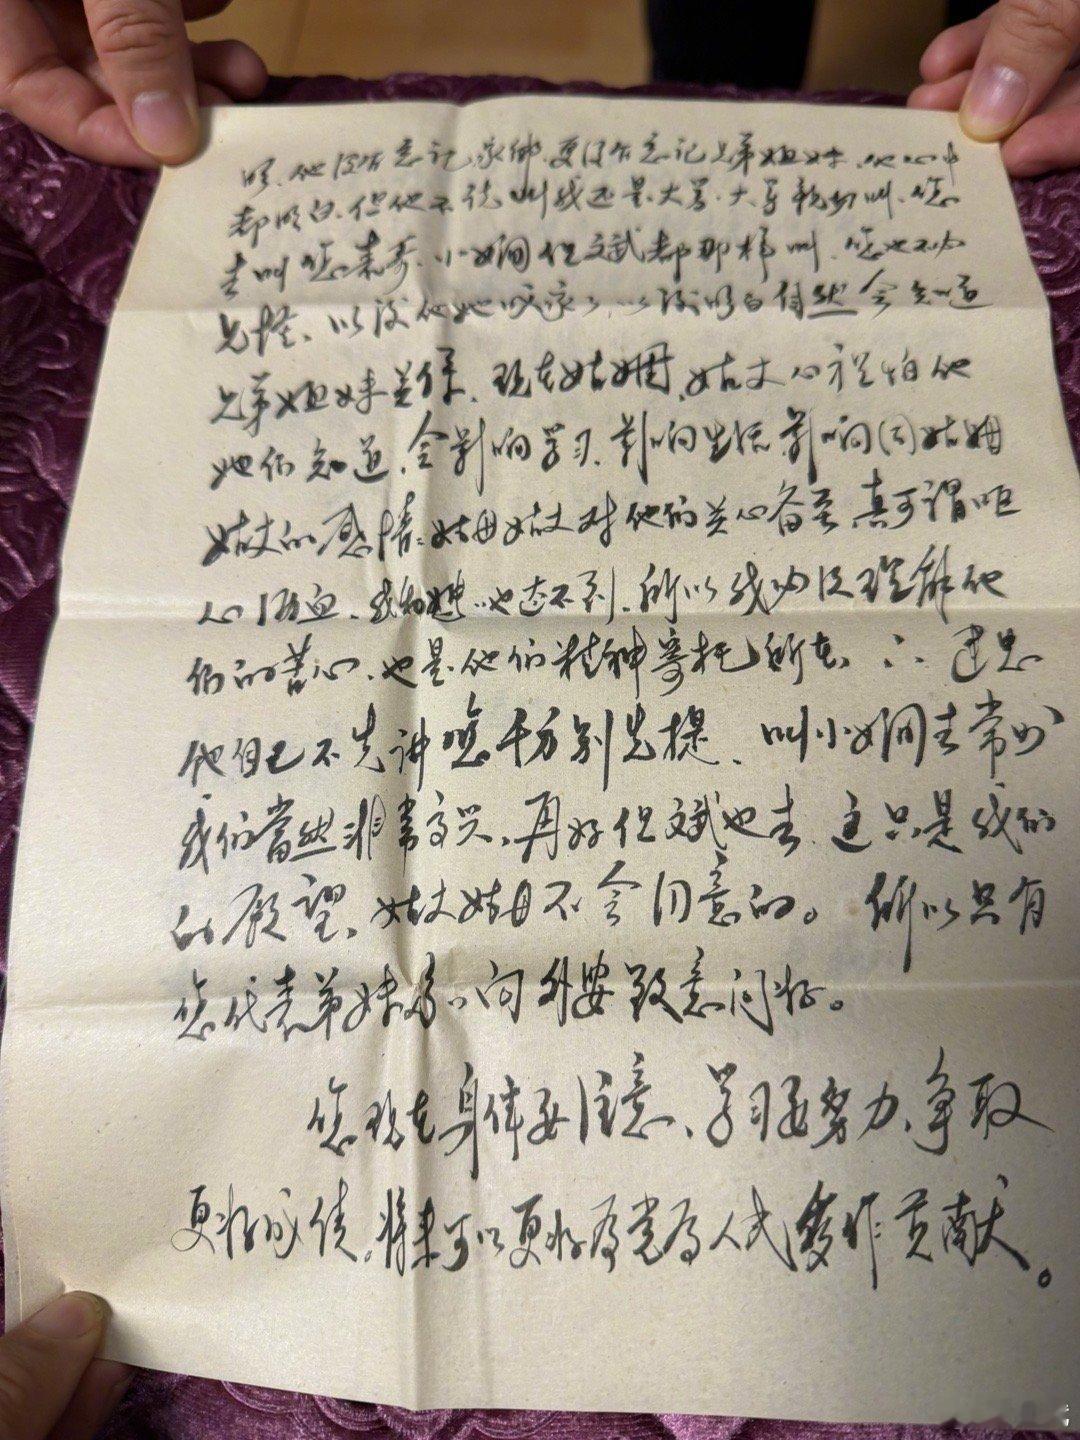 明、他没有忘记家乡、更没有忘记兄弟姐妹、他心中
都明白、但他不说、叫我还是大舅、大舅亲切叫、您
去叫您来哥、小娴但文斌都那样叫、您也不必
见怪、以后他她、以后明白自然会知道
兄弟姐妹关系、现在姑姆、姑丈心裡怕他
她们知道、会影响学习、影响生活影响同姑姆
姑丈的感情、姑姆姑丈对他们关心备至真可谓呕
心沥血、我和也达不到、所以我必须理解他
们的苦心、也是他们精神寄托所在、∴建忠
他自己不先讲您千万别先提、叫小娴去常州
我们當然非常高兴、再好但文斌也去、这只是我们
的愿望、姑丈姑姆不会同意的。所以只有
您代表弟妹多、问外婆致意问好。
您现在身体要注意、学习要努力、争取
更好成绩、将来可以更好为党为人民多作贡献。